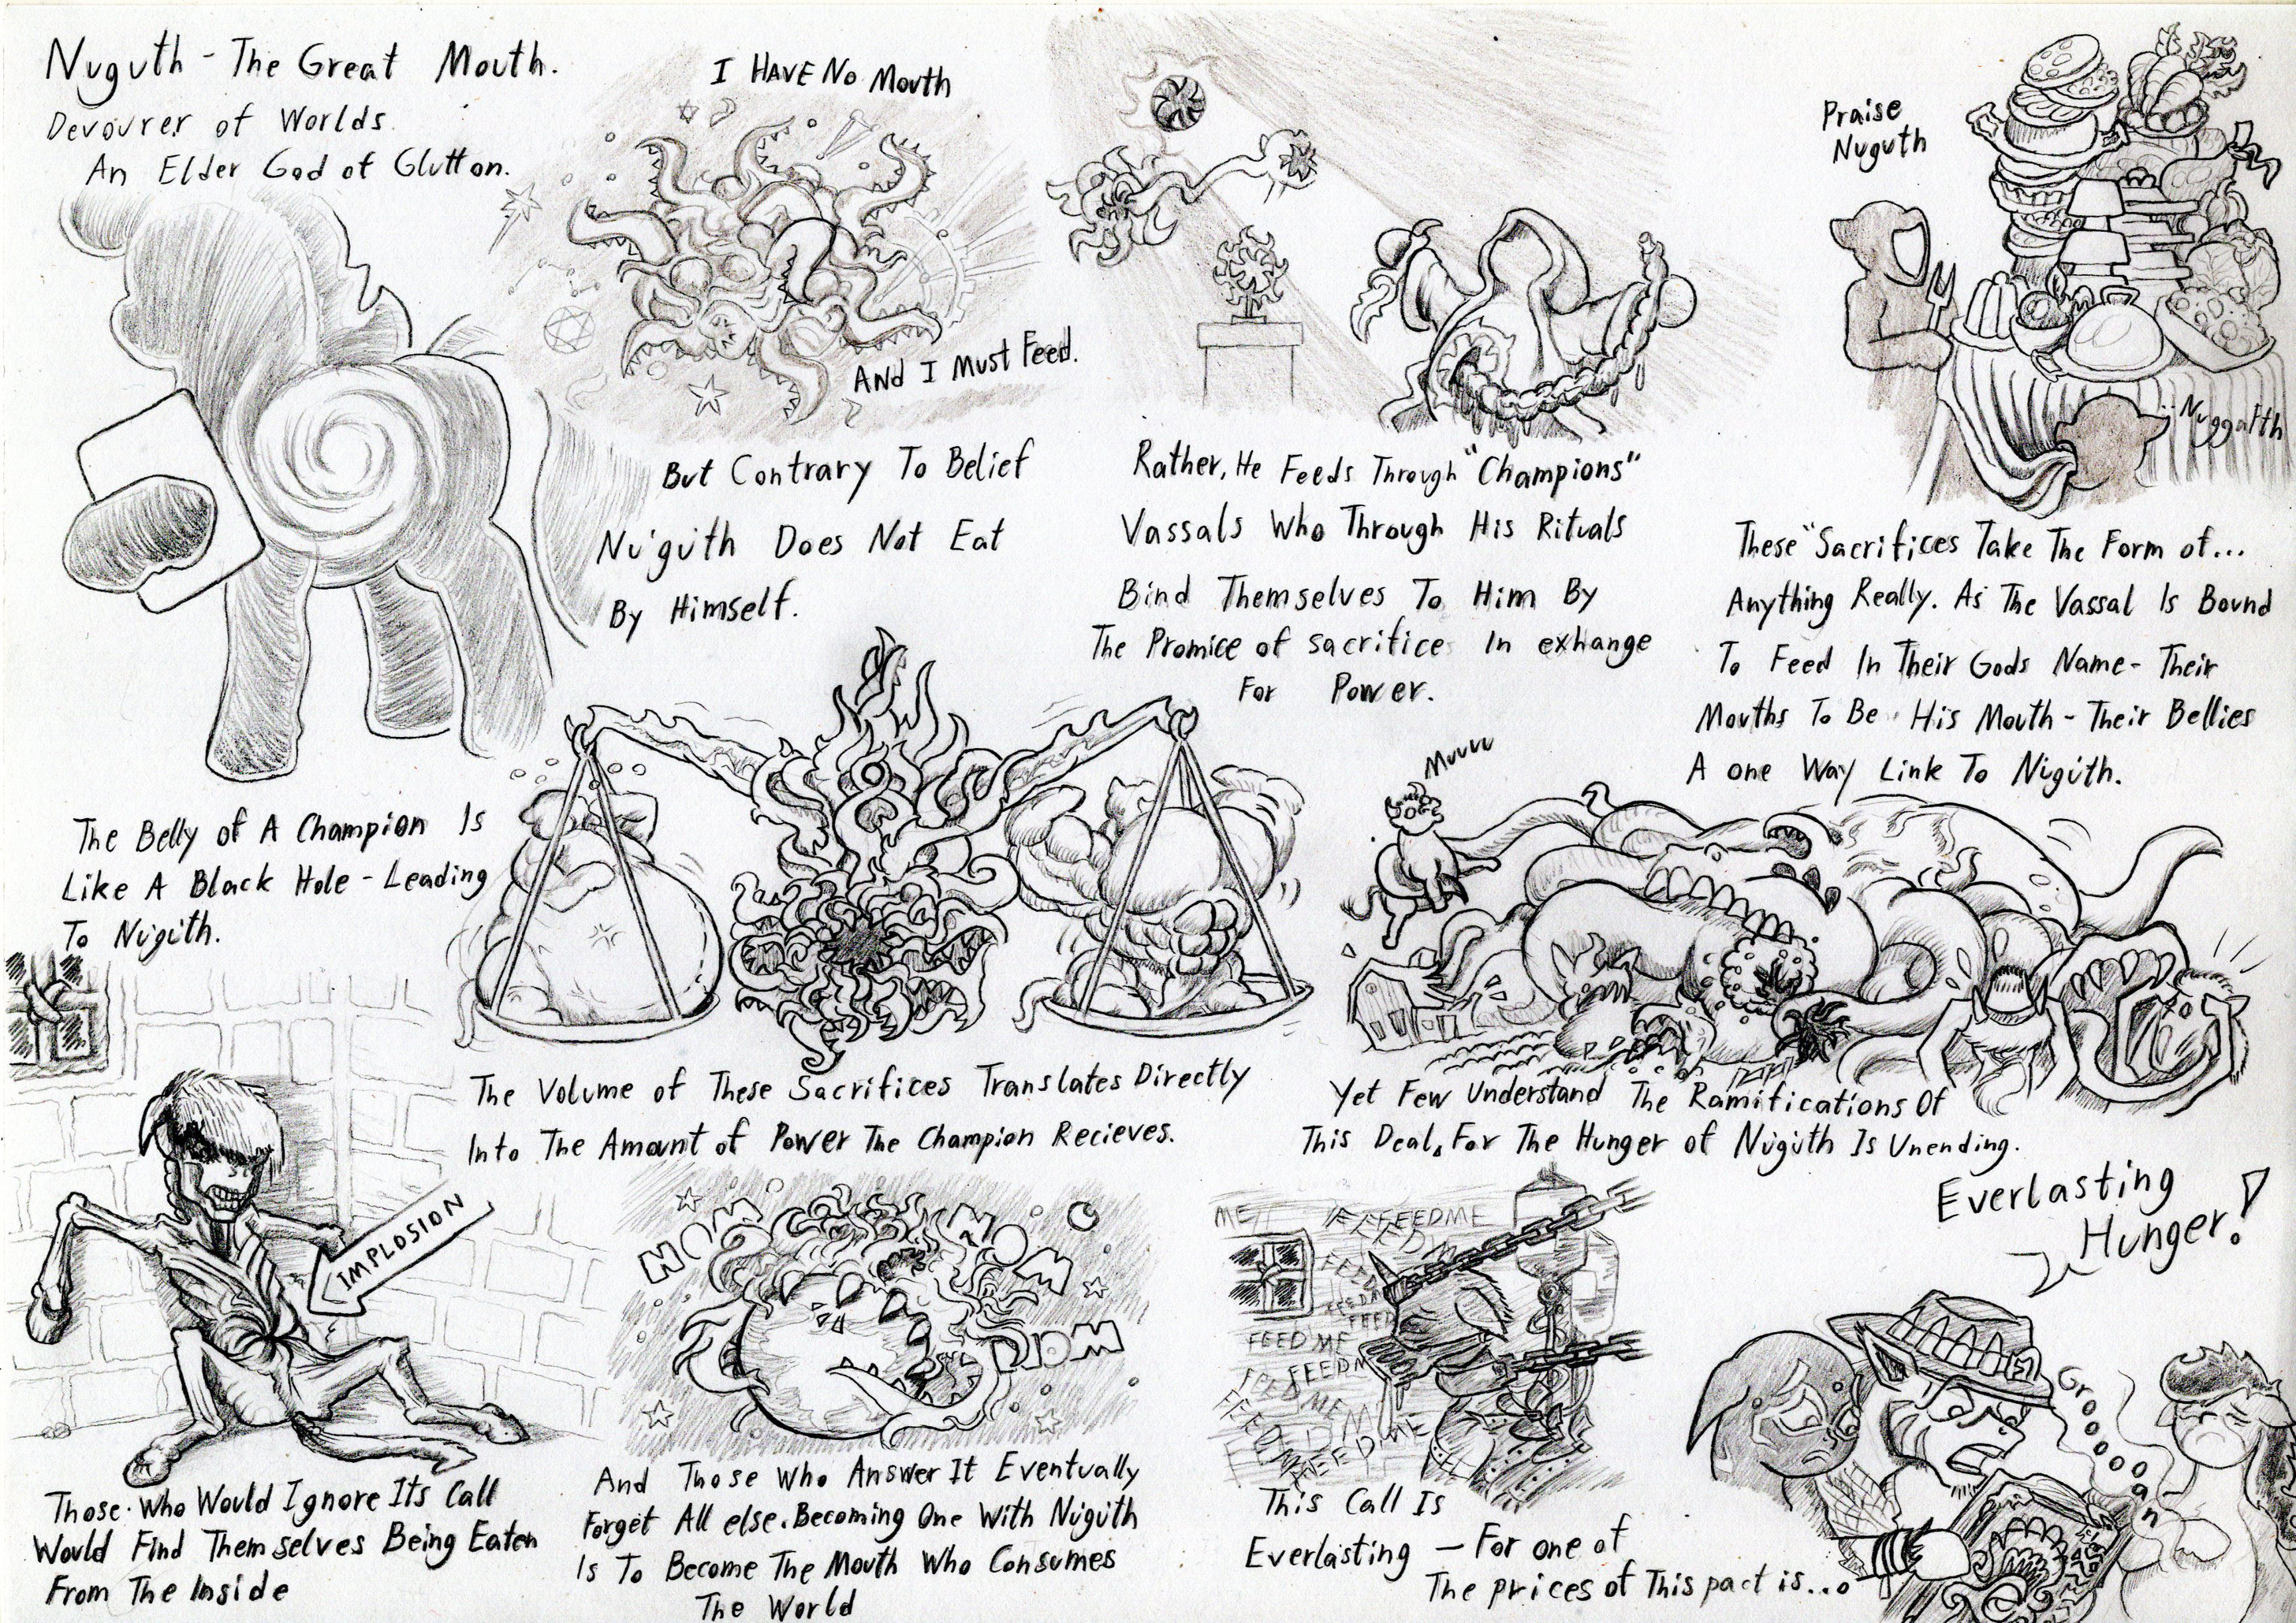 Nuguth - The Great Mouth.
Devourer of Worlds.
An Elder God of Glutton.
I HAVE No Mouth
AND I Must Feed.
But Contrary To Belief
Nuguth Does Not Eat
By Himself.
Rather, He Feeds Through "Champions"
Vassals Who Through His Rituals
Bind Themselves To Him By
The Promice of sacrifice In exhange
For Power.
Praise
Nuguth
..Nuggalth
These "Sacrifices Take The Form of...
Anything Really. As The Vassal Is Bound
To Feed In Their Gods Name - Their
Mouths To Be His Mouth - Their Bellies
A one Way Link To Niguth.
The Belly of A Champion Is
Like A Black Hole - Leading
To Niguth.
The Volume of These Sacrifices Translates Directly
Into The Amount of Power The Champion Recieves.
Muuuu
Yet Few Understand The Ramifications Of
This Deal, For The Hunger of Nuguth Is Unending.
IMPLOSION
Those Who Would Ignore Its Call
Would Find Themselves Being Eaten
From The Inside
NOM
NOM
NOM
And Those Who Answer It Eventually
Forget All else. Becoming One With Niguth
Is To Become The Mouth Who Consumes
The World
ME
FFFEEDME
FEEDM
FEED
FEEDM
FEED
FEED ME
FEEDM
FEED ME
FEEDME
This Call Is
Everlasting - For one of
The prices of This pact is...
Everlasting
Hunger!
Groooooan